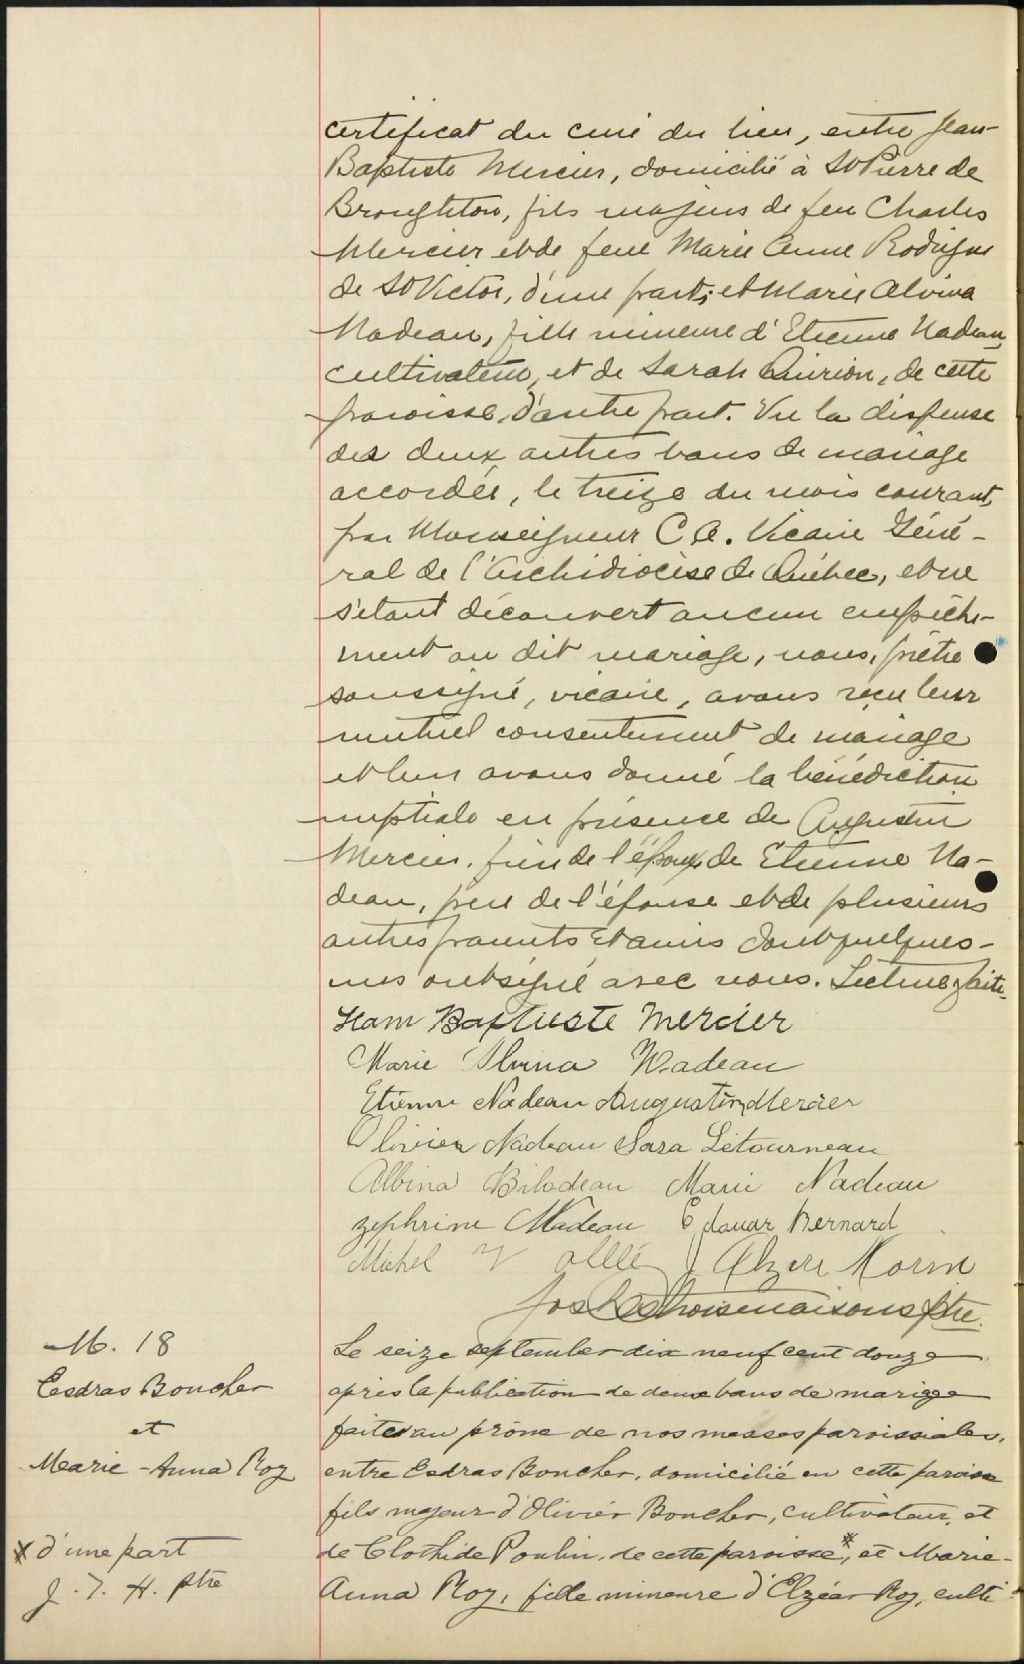 certificat du curé du lieu, entre Jean-
Baptiste Mercier, domicilié à St Pierre de
Broughton, fils majeur de feu Charles
Mercier et de feue Marie Anne Rodrigue
de St Victor, d'une part; et Marie Alvina
Nadeau, fille mineure d'Etienne Nadeau,
cultivateur, et de Sarah Quirion, de cette
paroisse, d'autre part. Vu la dispense
des deux autres bans de mariage
accordée, le treize du mois courant,
par Monseigneur C A. Vicaire Géné-
ral de l'Archidiocèse de Québec, et ne
s'étant découvert aucun empêche-
ment au dit mariage, nous, prêtre
soussigné, vicaire, avons reçu leur
mutuel consentement de mariage
et leur avons donné la bénédiction
nuptiale en présence de Augustin
Mercier, frère de l'époux, de Etienne Na-
deau, père de l'épouse et de plusieurs
autres parents et amis dont quelques-
uns ont signé avec nous. Lecture faite.
Jean Baptiste Mercier
Marie Alvina Nadeau
Etienne Nadeau Augustin Mercier
Olivier Nadeau Sara Létourneau
Albina Bilodeau Marie Nadeau
Zephrine Nadeau Edouar Bernard
Michel Vallé Alzire Morin
Jos Destroismaisons Ptre.
M. 18
Esdras Boucher
et
Marie-Anna Roy
Le seize septembre dix neuf cent douze
après la publication de deux bans de mariage
faites au prône de nos messes paroissiales,
entre Esdras Boucher, domicilié en cette paroisse
fils majeur d'Olivier Boucher, cultivateur, et
de Clothide Poulin, de cette paroisse*, et Marie-
Anna Roy, fille mineure d'Elzéar Roy, culti-
x d'une part
J. T. H. ptre